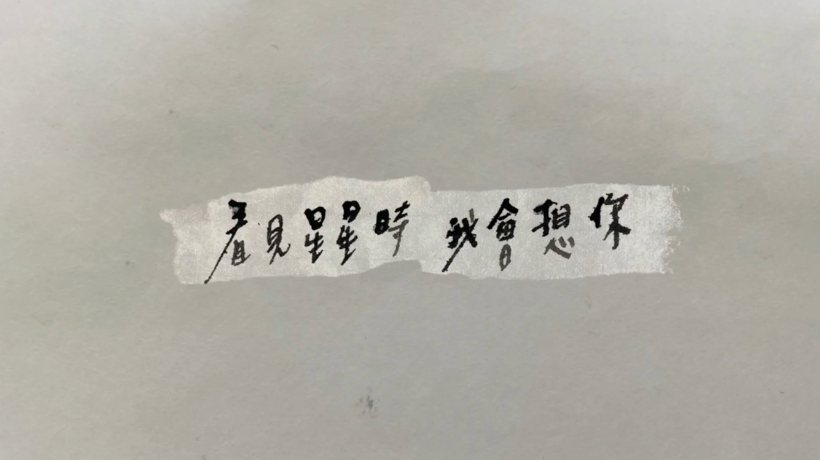 看見星星時 我會想你